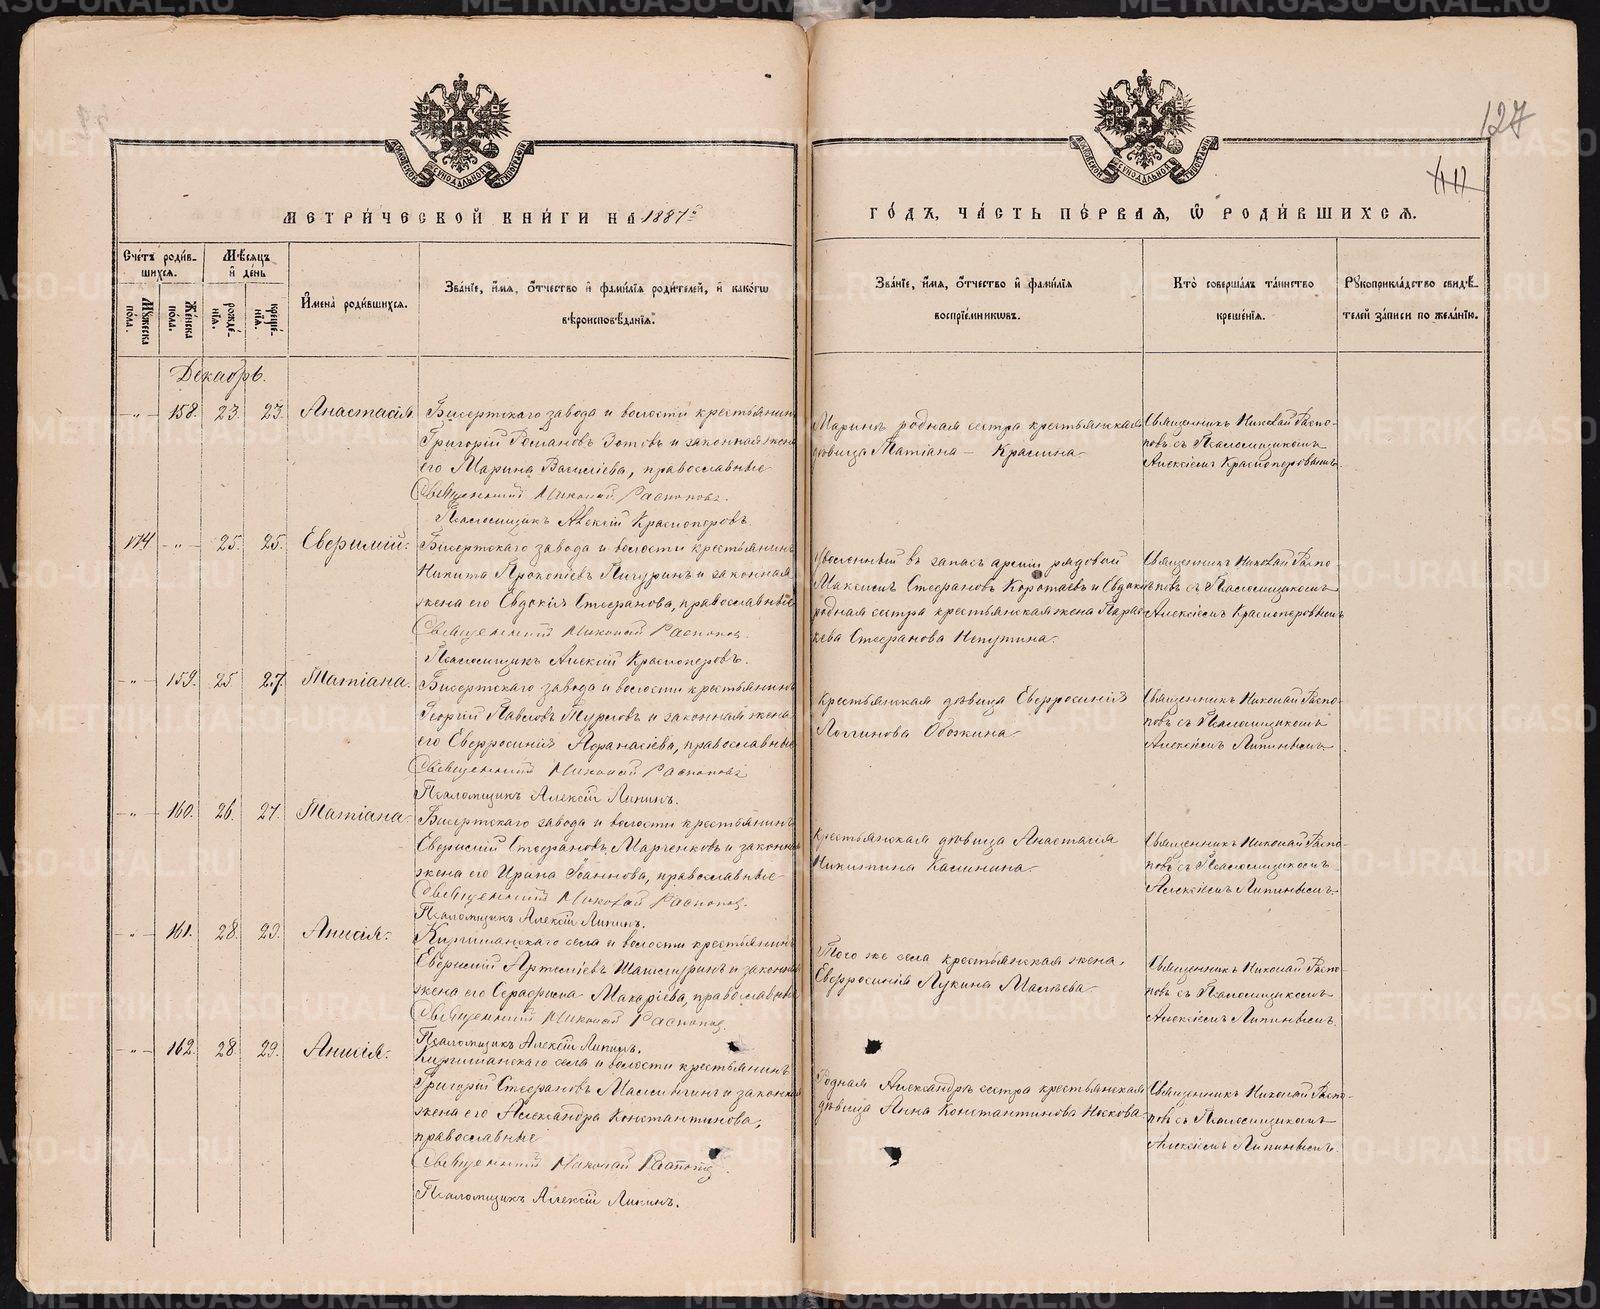 127
МЕТРИЧЕСКОЙ КНИГИ НА 1887 ГОДЪ, ЧАСТЬ ПЕРВАЯ, Ѡ РОДИВШИХСЯ.
Счетъ родив-
шихся.
Мужеска
пола.
Женска
пола.
Мѣсяцъ
и день
рожде-
нія.
креще-
нія.
Имена родившихся.
Званіе, имя, отчество и фамилія родителей, и какогω
вѣроисповѣданія.
Званіе, имя, отчество и фамилія
воспріемниковъ.
Кто совершалъ таинство
крещенія.
Рукоприкладство свидѣ-
телей записи по желанію.
Декабрь.
158. 23. 23. Анастасія
Бисертскаго завода и волости крестьянинъ
Григорій Романовъ Зотовъ и законная жена
его Марина Василіева, православные
Священникъ Николай Распоповъ.
Псаломщикъ Алексій Красноперовъ.
Марины родная сестра крестьянская
дѣвица Татіана
Священникъ Николай Распо-
повъ съ Псаломщикомъ
Алексіемъ Красноперовымъ.
25. 25. Евфимій
Бисертскаго завода и волости крестьянинъ
Никита Прокопіевъ Пичугинъ и законная
жена его Евдокія Стефанова, православные
Священникъ Николай Распоповъ
Псаломщикъ Алексій Красноперовъ.
Уволенный въ запасъ арміи рядовой
Максимъ Стефановъ Коротаевъ и Евдокіи
родная сестра крестьянская жена Парас-
кева Стефанова
Священникъ Николай Распо-
повъ съ Псаломщикомъ
Алексіемъ Красноперовымъ
159. 25. 27. Татіана
Бисертскаго завода и волости крестьянинъ
Георгій Павловъ и законная жена
его Евфросинія Афанасіева, православные
Священникъ Николай Распоповъ
Псаломщикъ Алексій Липинъ.
Крестьянская дѣвица Евфросинія
Логгинова
Священникъ Николай Распо-
повъ съ Псаломщикомъ
Алексіемъ Липинымъ
160. 26. 27. Татіана
Бисертскаго завода и волости крестьянинъ
Евфимій Стефановъ и законная
жена его Ирина Іоаннова, православные
Священникъ Николай Распоповъ.
Псаломщикъ Алексій Липинъ.
Крестьянская дѣвица Анастасія
Никитина Калинина
Священникъ Николай Распо-
повъ съ Псаломщикомъ
Алексіемъ Липинымъ
161. 28. 29. Анисія
Киргишанскаго села и волости крестьянинъ
Евфимій Артеміевъ и законная
жена его Серафима Макаріева, православные
Священникъ Николай Распоповъ.
Псаломщикъ Алексій Липинъ.
Того же села крестьянская жена
Евфросинія Лукина
Священникъ Николай Распо-
повъ съ Псаломщикомъ
Алексіемъ Липинымъ.
162. 28. 29. Анисія
Киргишанскаго села и волости крестьянинъ
Григорій Стефановъ и законная
жена его Александра Константинова,
православные
Священникъ Николай Распоповъ.
Псаломщикъ Алексій Липинъ.
Родная Александры сестра крестьянская
дѣвица Анна Константинова
Священникъ Николай Распо-
повъ съ Псаломщикомъ
Алексіемъ Липинымъ.
METRIKI.GASO-URAL.RU